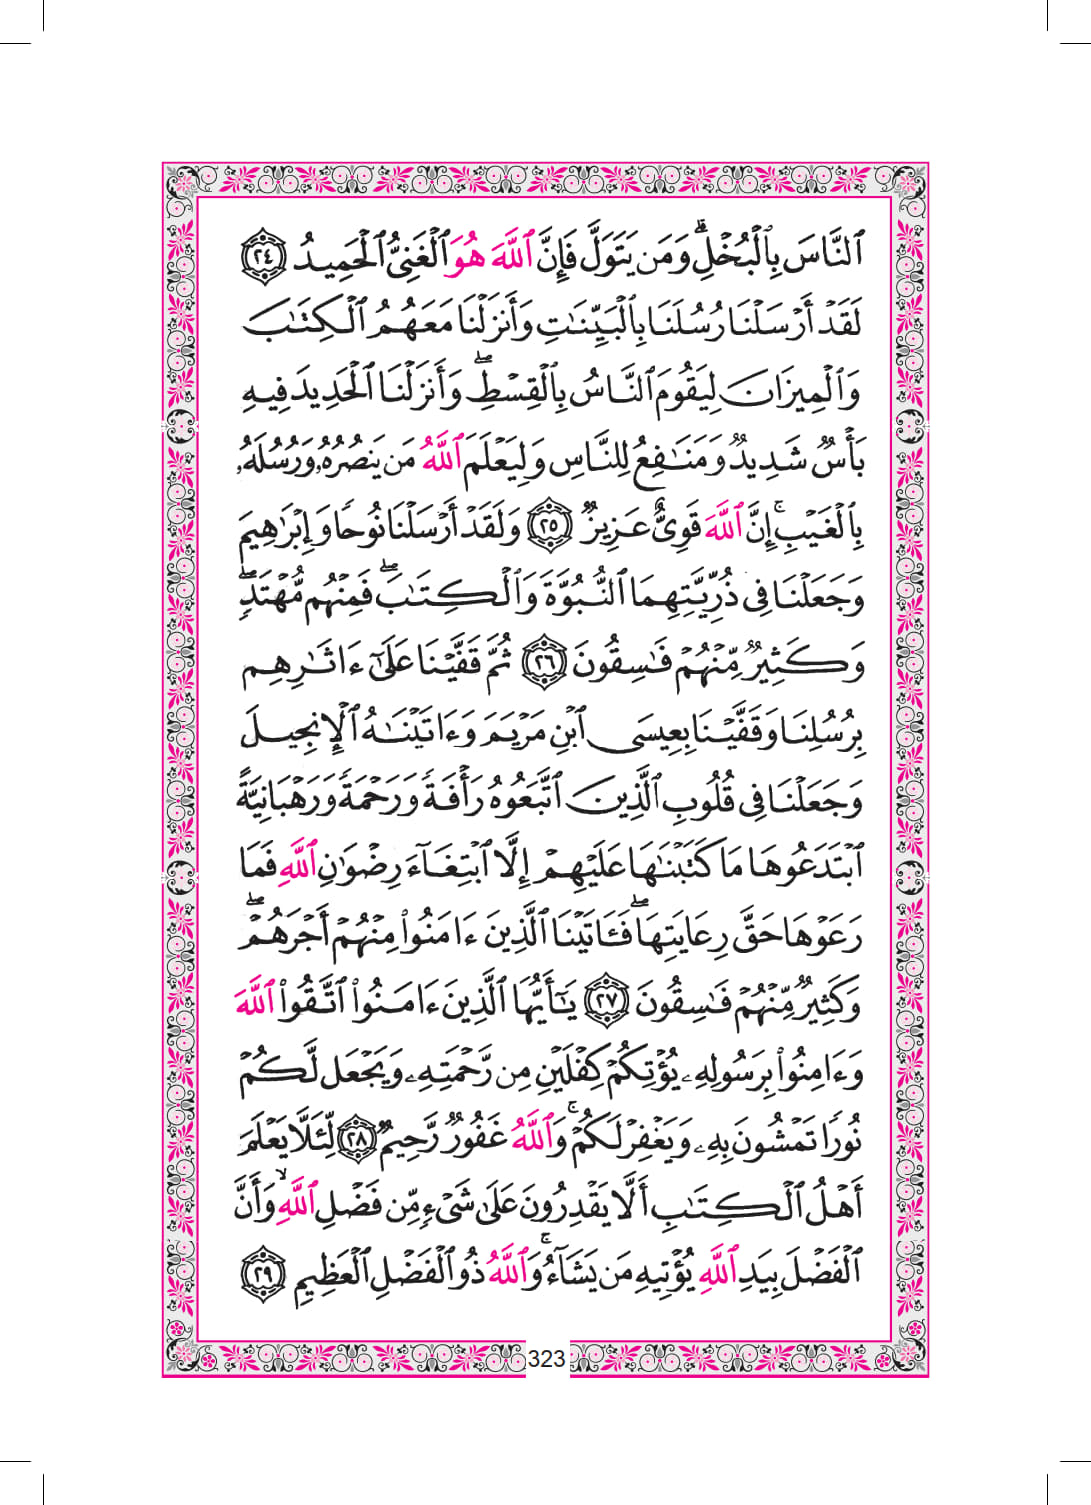 ٱلنَّاسَ بِٱلْبُخْلِ ۗ وَمَن يَتَوَلَّ فَإِنَّ ٱللَّهَ هُوَ ٱلْغَنِىُّ ٱلْحَمِيدُ ٢٤
لَقَدْ أَرْسَلْنَا رُسُلَنَا بِٱلْبَيِّنَٰتِ وَأَنزَلْنَا مَعَهُمُ ٱلْكِتَٰبَ
وَٱلْمِيزَانَ لِيَقُومَ ٱلنَّاسُ بِٱلْقِسْطِ ۖ وَأَنزَلْنَا ٱلْحَدِيدَ فِيهِ
بَأْسٌ شَدِيدٌ وَمَنَٰفِعُ لِلنَّاسِ وَلِيَعْلَمَ ٱللَّهُ مَن يَنصُرُهُۥ وَرُسُلَهُۥ
بِٱلْغَيْبِ ۚ إِنَّ ٱللَّهَ قَوِىٌّ عَزِيزٌ ٢٥ وَلَقَدْ أَرْسَلْنَا نُوحًا وَإِبْرَٰهِيمَ
وَجَعَلْنَا فِى ذُرِّيَّتِهِمَا ٱلنُّبُوَّةَ وَٱلْكِتَٰبَ ۖ فَمِنْهُم مُّهْتَدٍ ۖ
وَكَثِيرٌ مِّنْهُمْ فَٰسِقُونَ ٢٦ ثُمَّ قَفَّيْنَا عَلَىٰٓ ءَاثَٰرِهِم
بِرُسُلِنَا وَقَفَّيْنَا بِعِيسَى ٱبْنِ مَرْيَمَ وَءَاتَيْنَٰهُ ٱلْإِنجِيلَ
وَجَعَلْنَا فِى قُلُوبِ ٱلَّذِينَ ٱتَّبَعُوهُ رَأْفَةً وَرَحْمَةً وَرَهْبَانِيَّةً
ٱبْتَدَعُوهَا مَا كَتَبْنَٰهَا عَلَيْهِمْ إِلَّا ٱبْتِغَآءَ رِضْوَٰنِ ٱللَّهِ فَمَا
رَعَوْهَا حَقَّ رِعَايَتِهَا ۖ فَـَٔاتَيْنَا ٱلَّذِينَ ءَامَنُوا۟ مِنْهُمْ أَجْرَهُمْ ۖ
وَكَثِيرٌ مِّنْهُمْ فَٰسِقُونَ ٢٧ يَٰٓأَيُّهَا ٱلَّذِينَ ءَامَنُوا۟ ٱتَّقُوا۟ ٱللَّهَ
وَءَامِنُوا۟ بِرَسُولِهِۦ يُؤْتِكُمْ كِفْلَيْنِ مِن رَّحْمَتِهِۦ وَيَجْعَل لَّكُمْ
نُورًا تَمْشُونَ بِهِۦ وَيَغْفِرْ لَكُمْ ۚ وَٱللَّهُ غَفُورٌ رَّحِيمٌ ٢٨ لِّئَلَّا يَعْلَمَ
أَهْلُ ٱلْكِتَٰبِ أَلَّا يَقْدِرُونَ عَلَىٰ شَىْءٍ مِّن فَضْلِ ٱللَّهِ ۙ وَأَنَّ
ٱلْفَضْلَ بِيَدِ ٱللَّهِ يُؤْتِيهِ مَن يَشَآءُ ۚ وَٱللَّهُ ذُو ٱلْفَضْلِ ٱلْعَظِيمِ ٢٩
323